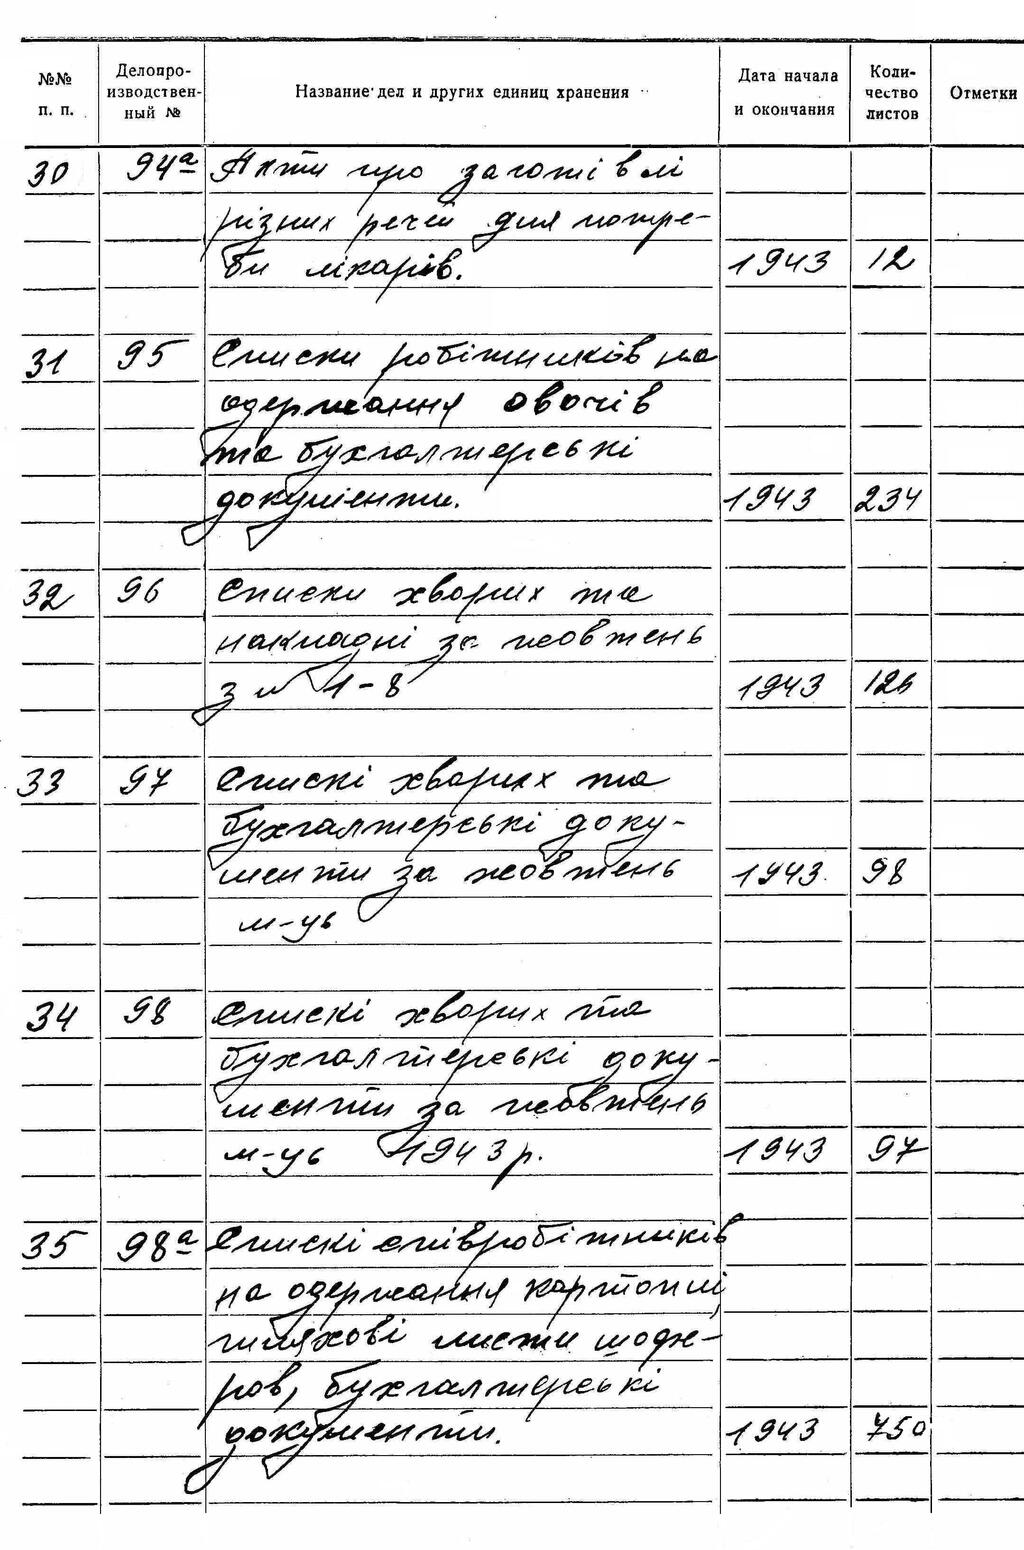 №№ п. п.
Делопро-
изводствен-
ный №
Название дел и других единиц хранения
Дата начала
и окончания
Коли-
чество
листов
Отметки
30 94а Акти про заготівлі
різних речей для потре-
би лікарів. 1943 12
31 95 Списки робітників на
одержання овочів
та бухгалтерські
документи. 1943 234
32 96 Списки хворих та
накладні за жовтень
з 1-8 1943
33 97 Спискі хворих та
бухгалтерські доку-
менти за жовтень 1943 98
м-ць
34 98 Спискі хворих та
бухгалтерські доку-
менти за жовтень
м-ць 1943 р. 1943 97
35 98а Спискі співробітників
на одержання картоплі,
шляхові листи
бухгалтерські
документи. 1943 750